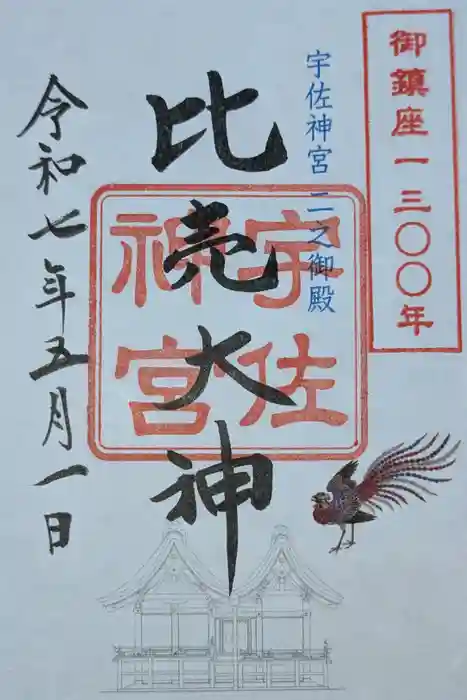 御鎮座一三〇〇年
宇佐神宮 二之御殿
比売大神
宇佐
神宮
令和七年五月一日